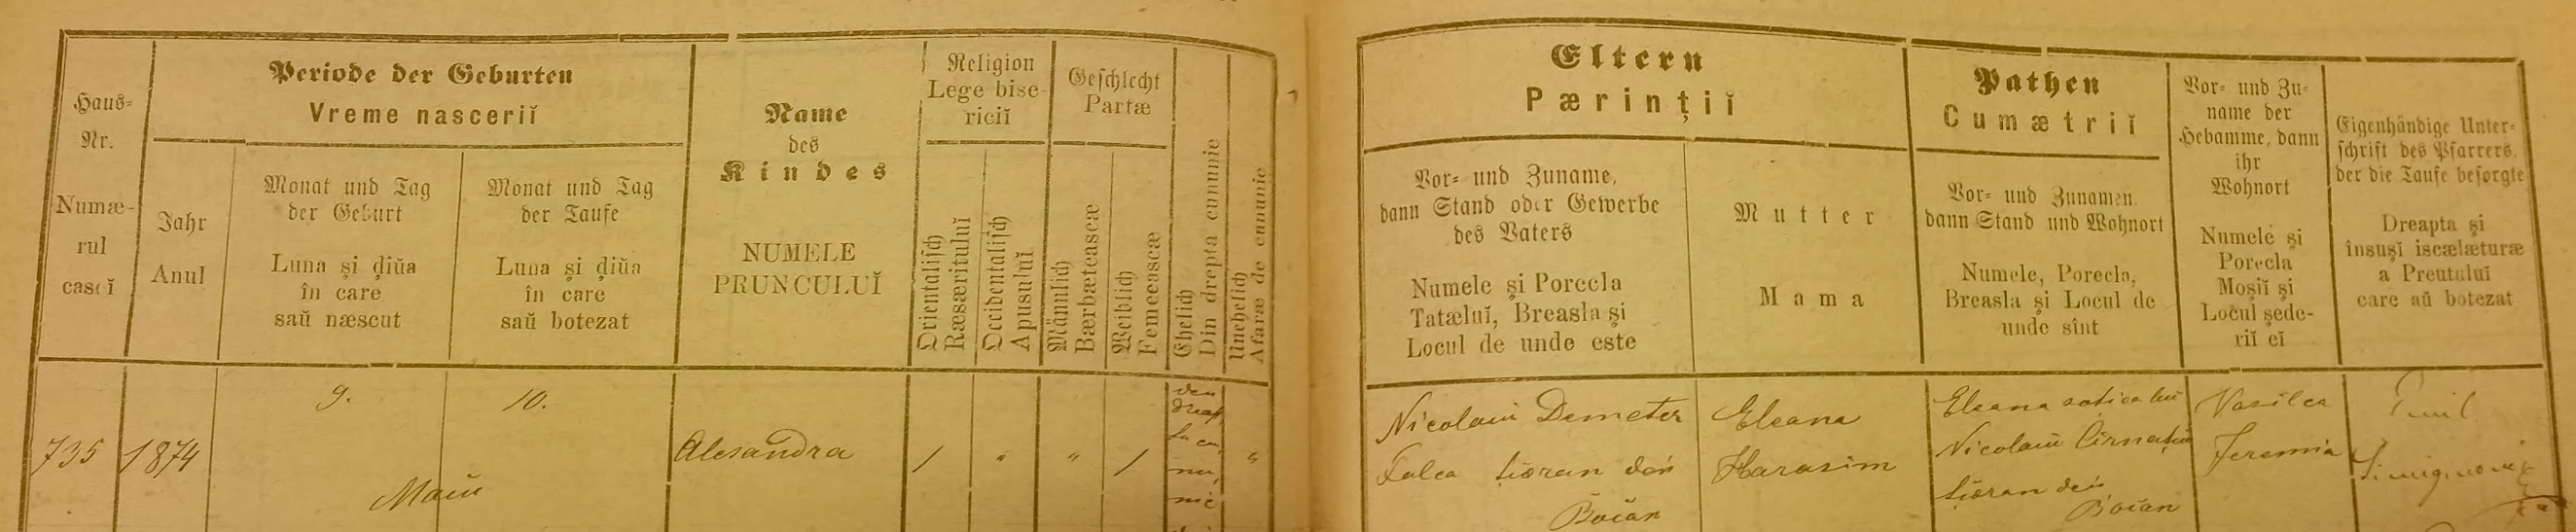 Haus=
Nr.
Numæ-
rul
casei
Periode der Geburten
Vreme nasceriĭ
Jahr
Anul
Monat und Tag
der Geburt
Luna și ḑiŭa
în care
saŭ næscut
Monat und Tag
der Taufe
Luna și ḑiŭa
în care
saŭ botezat
Name
des
Kindes
NUMELE
PRUNCULUĬ
Religion
Lege bise-
riciĭ
Orientalisch
Ræsærituluĭ
Occidentalisch
Apusuluĭ
Geschlecht
Partæ
Männlich
Bærbæteascæ
Weiblich
Femeeascæ
Ehelich
Din drepta cununie
Unehelich
Afaræ de cununie
Eltern
Pærințiĭ
Vor= und Zuname,
dann Stand oder Gewerbe
des Vaters
Numele și Porecla
Tatæluĭ, Breasla și
Locul de unde este
Mutter
Mama
Pathen
Cumætriĭ
Vor= und Zunamen,
dann Stand und Wohnort
Numele, Porecla,
Breasla și Locul de
unde sînt
Vor= und Zu=
name der
Hebamme, dann
ihr
Wohnort
Numele și
Porecla
Moșiĭ și
Locul șede-
riĭ eĭ
Eigenhändige Unter=
schrift des Pfarrers,
der die Taufe besorgte
Dreapta și
însușĭ iscælæturæ
a Preutuluĭ
care aŭ botezat
735
1874
9.
10.
Maiu
Alesandra
/
"
"
/
den
dreap
ta cu
nu
nie
"
Nicolaiŭ Demeter
Falca țĭoran den
Boian
Eleana
Harasim
Eleana soția lui
Nicolaiŭ Cîrnațiu
țĭoran den
Boian
Vasilca
Jeremia
Emil